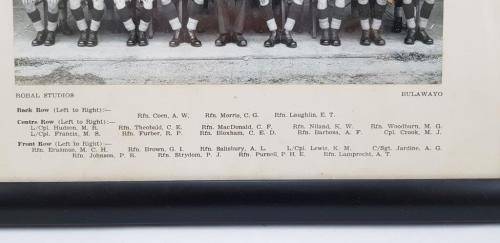 ROBAL STUDIOS BULAWAYO
Back Row (Left to Right):—
Rfn. Coen, A. W. Rfn. Morris, C. G. Rfn. Laughlin, E. T.
Centre Row (Left to Right):—
L/Cpl. Hudson, M. R. Rfn. Theobald, C. E. Rfn. MacDonald, C. F. Rfn. Niland, K. W. Rfn. Woodburn, M. G.
L/Cpl. Francis, M. S. Rfn. Furber, R. P. Rfn. Bloxham, C. E. D. Rfn. Barbosa, A. F. Cpl. Crook, M. J.
Front Row (Left to Right) :—
Rfn. Erasmus, M. C. H. Rfn. Brown, G. I. Rfn. Salisbury, A. L. L/Cpl. Lewis, K. M. C/Sgt. Jardine, A. G.
Rfn. Johnson, P. R. Rfn. Strydom, P. J. Rfn. Purnell, P. H. E. Rfn. Lamprecht, A. T.